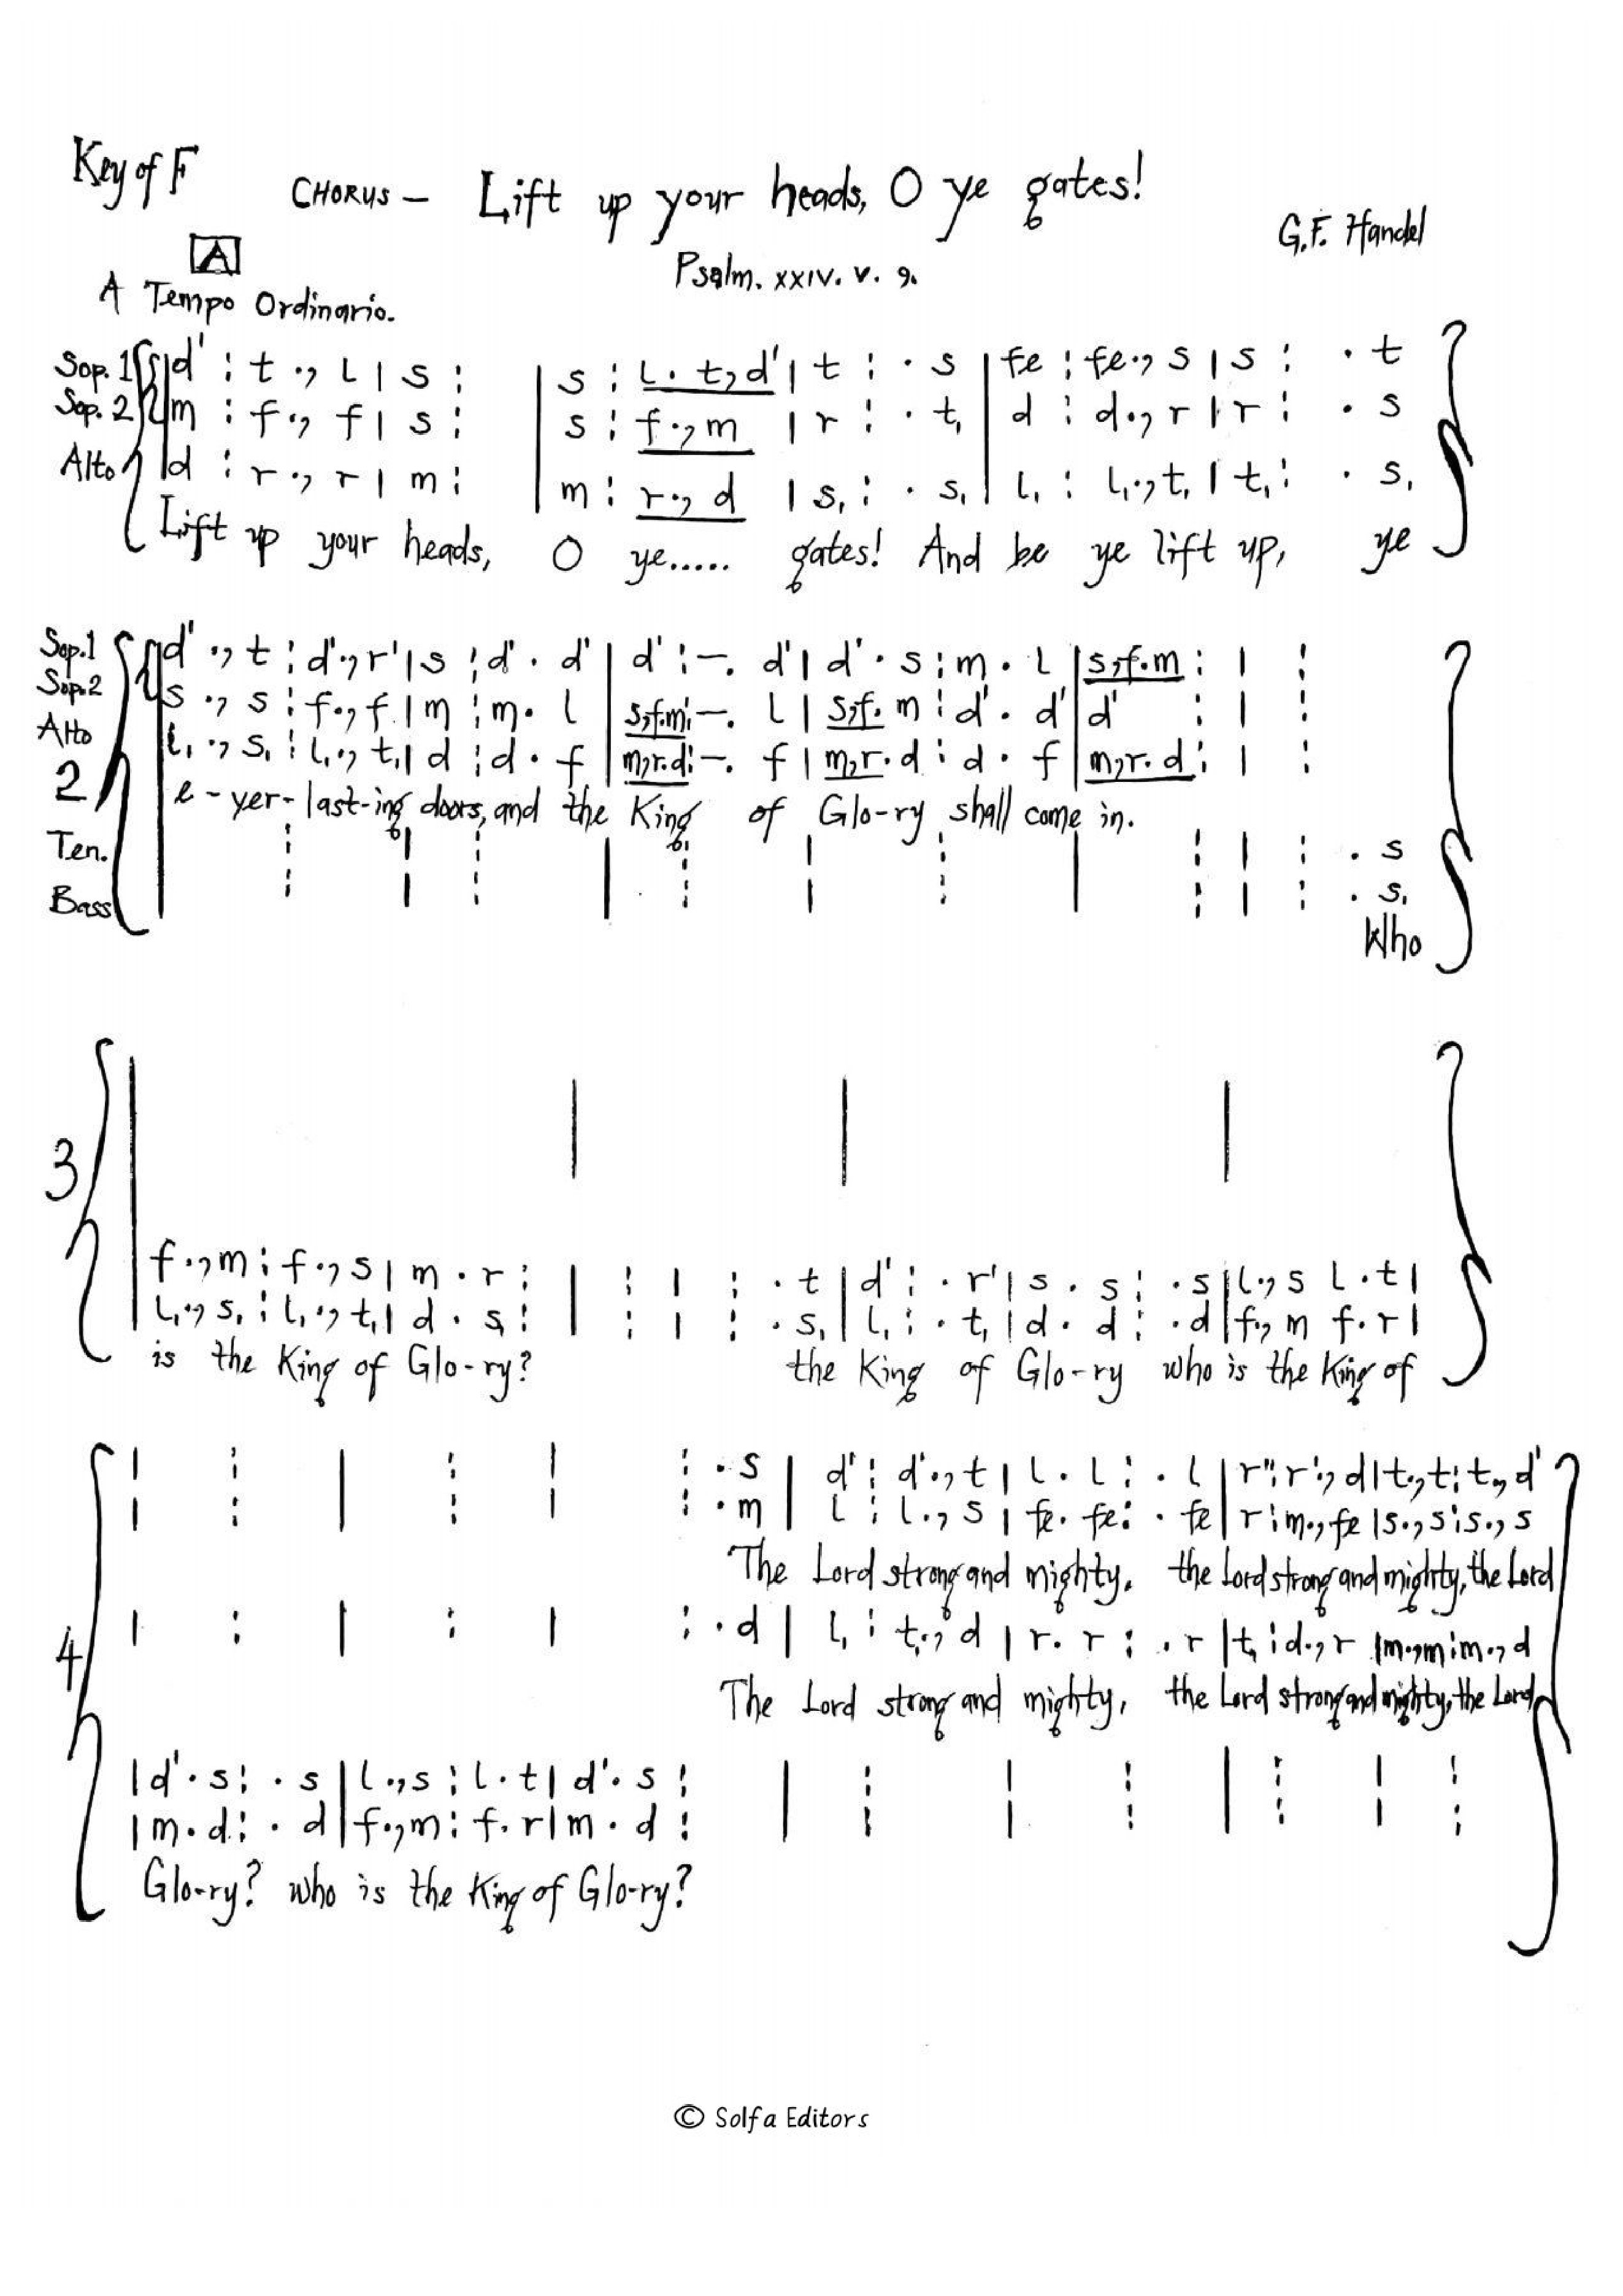 Key of F
CHORUS – Lift up your heads, O ye gates!
G.F. Handel
A
Psalm. xxiv. v. 9.
A Tempo Ordinario.
Sop. 1 |d' : t ., l | s : | s : l . t, d' | t : . s | fe : fe ., s | s : . t
Sop. 2 |m : f ., f | s : | s : f ., m | r : . t, | d : d ., r | r : . s
Alto |d : r ., r | m : | m : r ., d | s, : . s, | l, : l, ., t, | t, : . s,
Lift up your heads, O ye..... gates! And be ye lift up, ye
Sop.1 |d' ., t : d' ., r' | s : d' . d' | d' : – . d' | d' . s : m . l | s,f.m : | :
Sop.2 |s ., s : f ., f | m : m . l | s,f.m : – . l | s,f. m : d' . d' | d' : | :
Alto |l, ., s, : l, ., t, | d : d . f | m,r.d : – . f | m,r. d : d . f | m,r. d : | :
2
e - ver - last-ing doors, and the King of Glo-ry shall come in.
Ten. : | : | : | : | : | : . s
Bass : | : | : | : | : | : . s,
Who
3
f ., m : f ., s | m . r : | : | : . t | d' : . r' | s . s : . s | l ., s l . t |
l, ., s, : l, ., t, | d . s, : | : | : . s, | l, : . t, | d . d : . d | f ., m f . r |
is the King of Glo-ry? the King of Glo-ry who is the King of
4
| : | : | : . s | d' : d' ., t | l . l : . l | r'' : r' ., d | t ., t : t ., d'
| : | : | : . m | l : l ., s | fe . fe : . fe | r : m ., fe | s ., s : s ., s
The Lord strong and mighty, the Lord strong and mighty, the Lord
| : | : | : . d | l, : t, ., d | r . r : . r | t, : d ., r | m ., m : m ., d
The Lord strong and mighty, the Lord strong and mighty, the Lord
| d' . s : . s | l ., s : l . t | d' . s : | : | : | : | :
| m . d : . d | f ., m : f . r | m . d : | : | : | : | :
Glo-ry? who is the King of Glo-ry?
© Solfa Editors